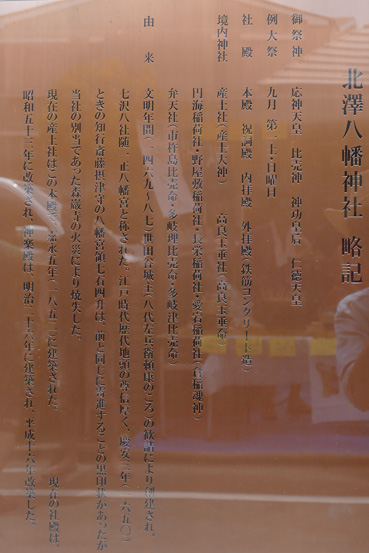 北澤八幡神社 略記
御祭神 応神天皇 比売神 神功皇后 仁徳天皇
例大祭 九月 第二土・日曜日
社殿 本殿 祝詞殿 内拝殿 外拝殿(鉄筋コンクリート造)
境内神社 産土社(産土大神) 高良玉垂社(高良玉垂命)
円海稲荷社・野屋敷稲荷社・長栄稲荷社・愛宕稲荷社(倉稲魂神)
弁天社(市杵島比売命・多岐理比売命・多岐津比売命)
由来 文明年間(一四六九〜八七)世田谷城主 八代左兵衛頼康のころの勧請により創建され、
七沢八社随一正八幡宮と称された。江戸時代歴代地頭の尊信厚く、慶安三年(一六五〇)
ときの知行斎藤摂津守の八幡宮領七石四斗は、前と同じに寄進することの黒印状があったが
当社の別当であった森巌寺の火災により焼失した。
現在の産土社はこの本殿で、嘉永五年(一八五二)に建築された。 現在の社殿は、
昭和五十三年に改築され、神楽殿は、明治二十六年に建築され、平成十八年改築した。